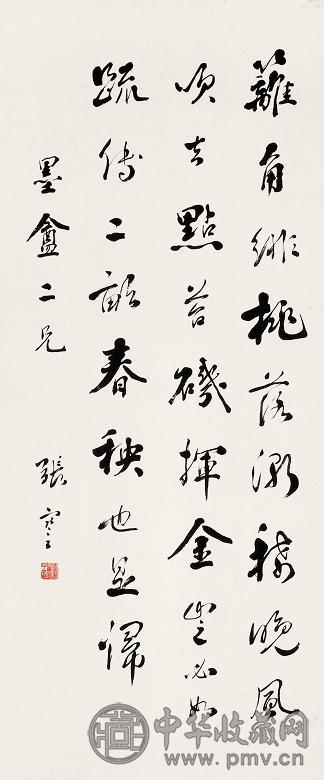 籬角緋桃落漸稀晚風
吹去點苔磯揮金豈必如
疏傅二畝春秧也是歸
墨盦二兄
張謇
中华收藏网
www.pmv.cn